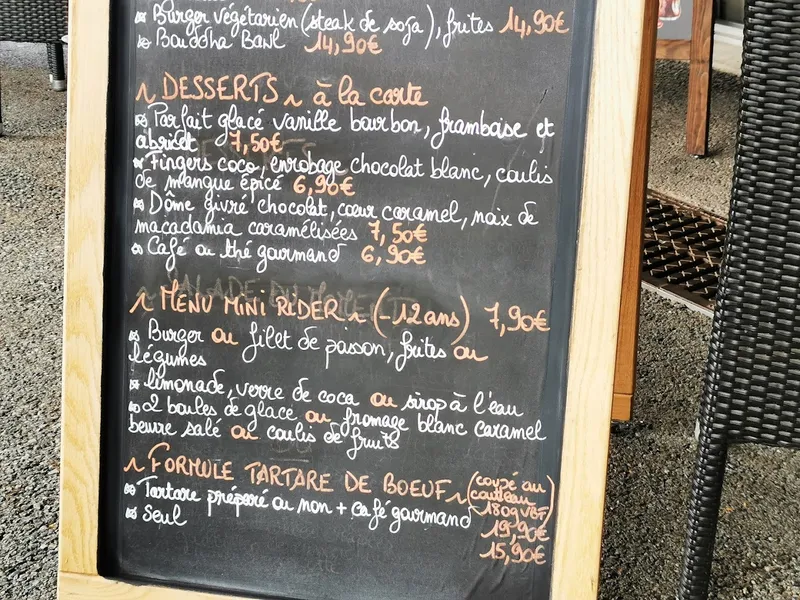 Burger végétarien (steak de soja), frites 14,90€
Bouddha Bowl 14,90€
~ DESSERTS ~ à la carte
Parfait glacé vanille bourbon, framboise et
abricot 7,50€
Fingers coco, enrobage chocolat blanc, coulis
de mangue épicé 6,90€
Dôme givré chocolat, cœur caramel, noix de
macadamia caramélisées 7,50€
Café ou thé gourmand 6,90€
~ MENU MINI RIDER ~ (-12 ans) 7,90€
Burger ou filet de poisson, frites ou
légumes
limonade, verre de coca ou sirop à l'eau
2 boules de glace ou fromage blanc caramel
beurre salé ou coulis de fruits
~ FORMULE TARTARE DE BOEUF ~ (coupé au
couteau
180g VBF)
Tartare préparé ou non + café gourmand 19,90€
Seul 15,90€